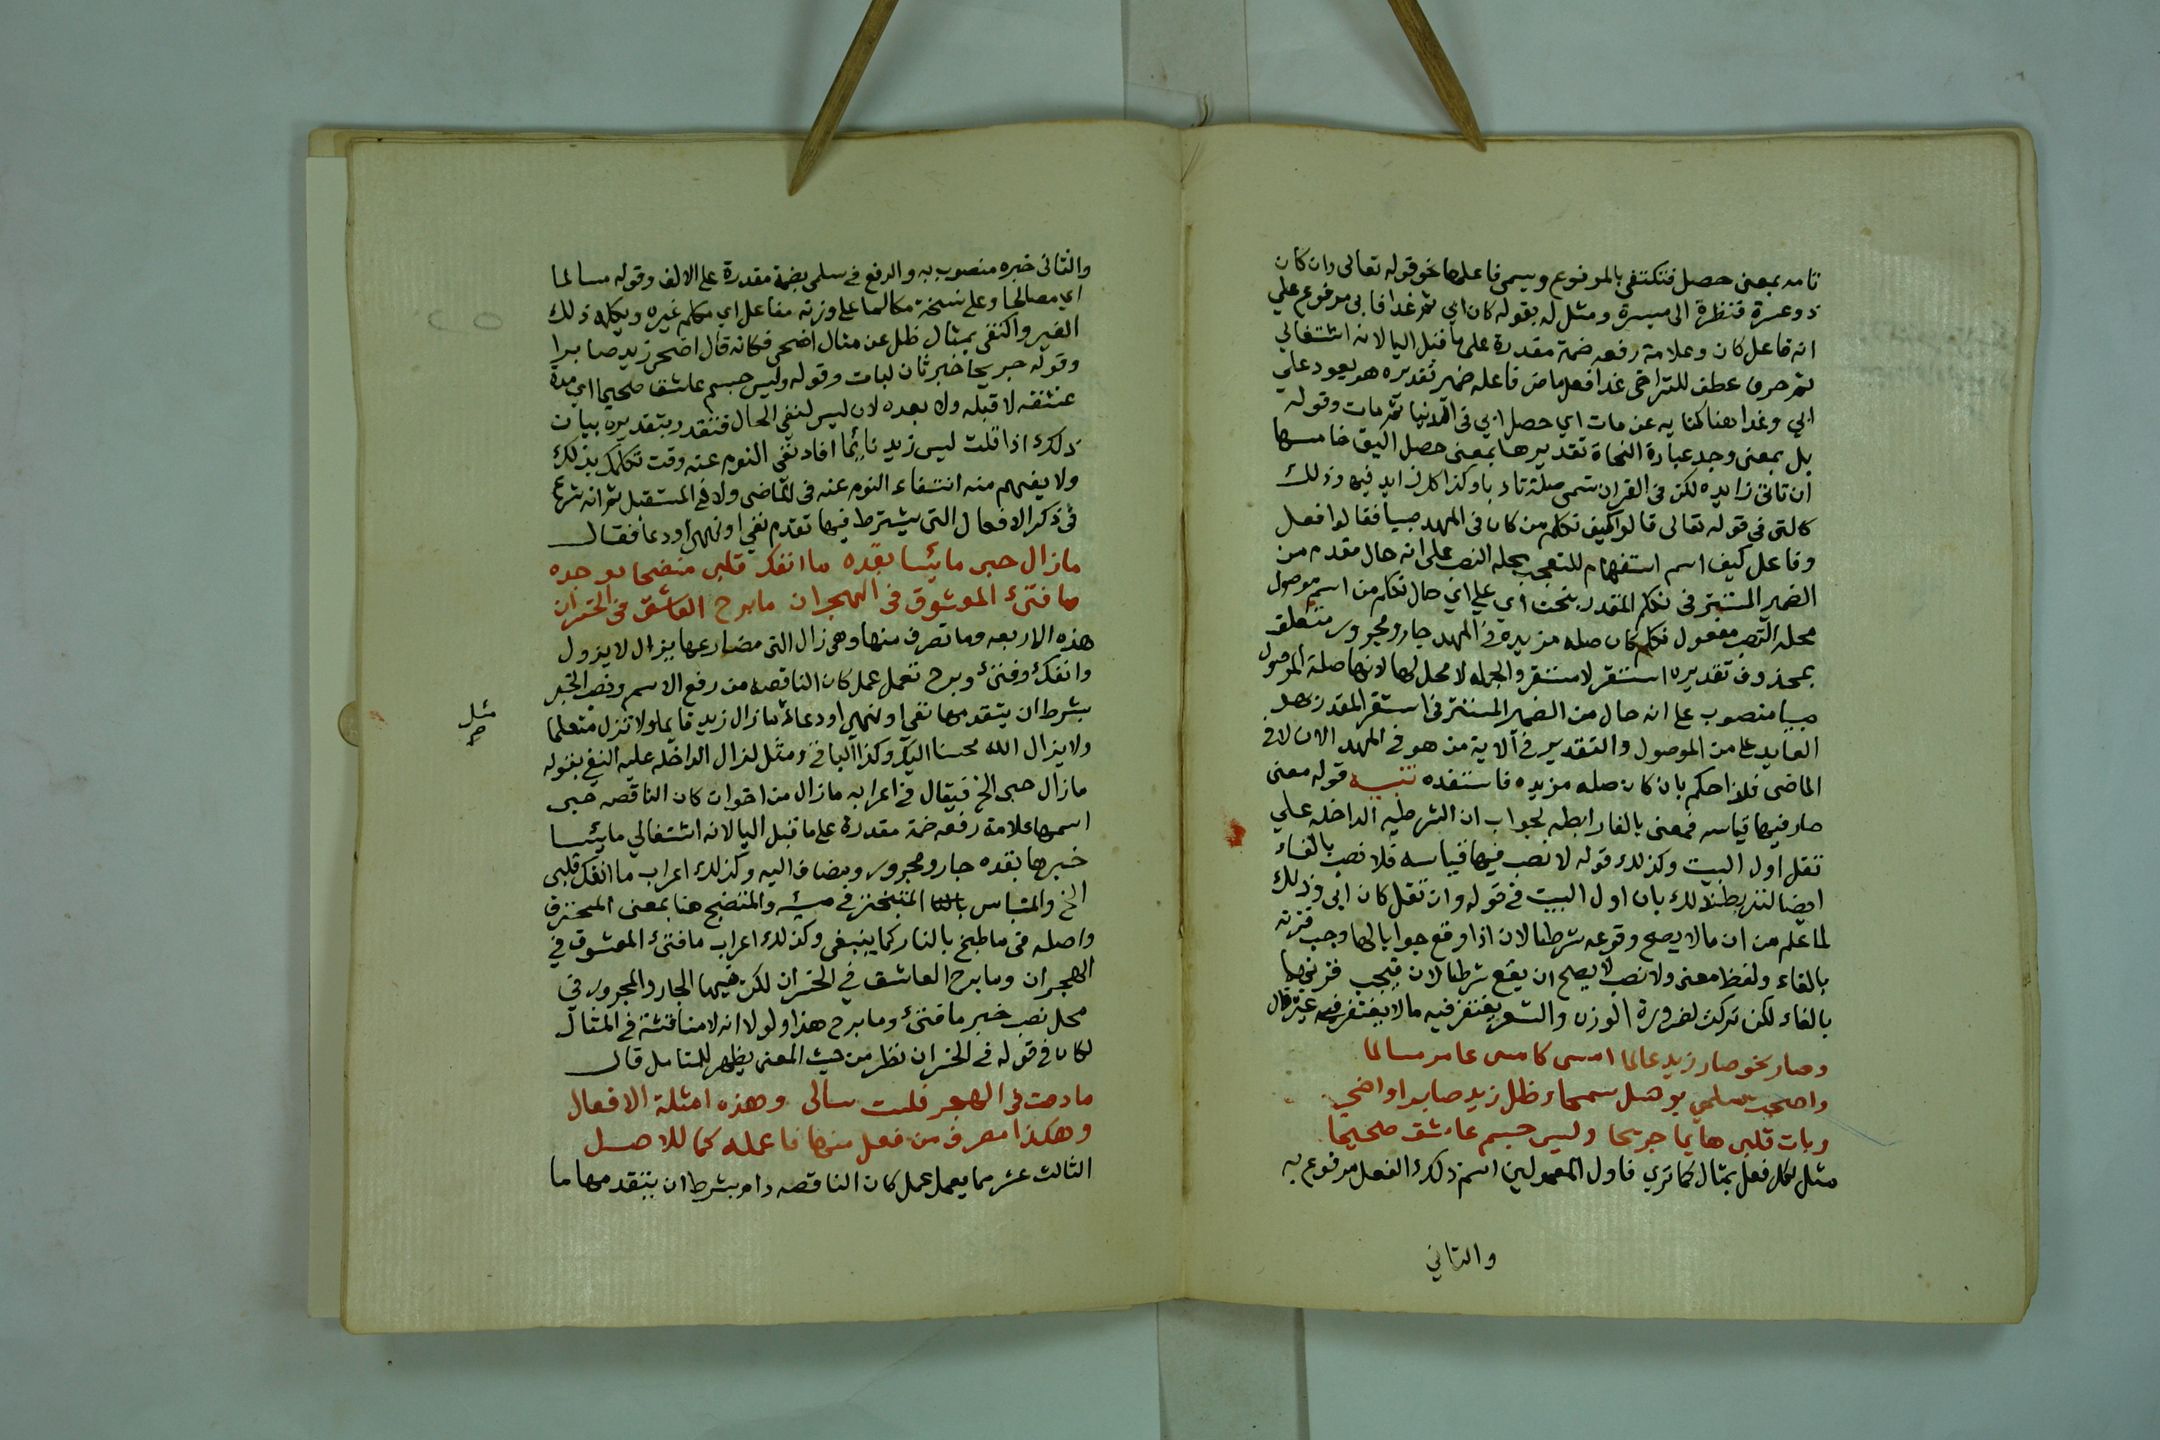 تامه بمعنى حصل فتكتفي بالمرفوع ويسمى فاعلها نحو قوله تعالى وان كان
ذو عسرة فنظرة الى ميسرة ومثل له بقوله كان ابي ثم غدا فابي مرفوع علي
انه فاعل كان وعلامة رفعه ضمة مقدرة على ما قبل اليا لانه اشتغالي
ثم حرف عطف للتراخي غدا فعل ماض فاعله ضمير تقديره هو يعود علي
ابي وغدا هنا كنايه عن مات اي حصل ابي في الدنيا ثم مات وقوله
بل بمعنى وجد عبارة النحاة تقديرها بمعنى حصل اليق خامسها
ان تاتي زايده لكن في القران تسمى صلة تادبا وكذا كل زايد فيه وذلك
كالتي في قوله تعالى قالوا كيف نكلم من كان في المهد صبيا فقالوا فعل
وفاعل كيف اسم استفهام للتعجب محله النصب على انه حال مقدم من
الضمير المستتر في نكلم المقدر بنحن اي علي اي حال نكلم من اسم موصول
محله النصب مفعول نكلم كان صله مزيدة في المهد جار ومجرور متعلق
بمحذوف تقديره استقر لا مستقر والجمله لا محل لها لانها صلة الموصول
صبيا منصوب على انه حال من الضمير المستتر في استقر المقدر
العايد على من الموصول والتقدير في الاية من هو في المهد الان لا في
الماضي فلذا حكم بان كان صله مزيده فاستفده تنبيه قوله معنى
صار فيها قياسه فمعنى بالفا رابطه لجواب ان الشرطيه الداخله علي
تقل اول البيت وكذلك قوله لا نصب فيها قياسه فلا نصب بالفاء
ايضا لتربطه كذلك بان اول البيت في قوله وان تقل كان ابي وذلك
لما علم من ان ما لا يصح وقوعه شرطا لان اذا وقع جوابا لها وجب قرنه
بالفاء ولفظ معنى ولا نصب لا يصح ان يقع شرطا لان فيجب قرنها
بالفاء لكن تركت لضرورة الوزن والشعر يغتفر فيه ما لا يغتفر في غيره قال
وصار نحو صار زيد عالما امسى كامسى عامر مسالما
واصبحت سلمي بوصل سمحاء وظل زيد صابرا واضحي
وبات قلبي هايما جريحا وليس جسم عاشق صحيحا
مثل لكل فعل بمثال كما تري فاول المعمولين اسم ذلك الفعل مرفوع به
والثاني
والثاني خبره منصوب به والرفع في سلمى بضمة مقدرة على الالف وقوله مسالما
اي مصالحا وعلى نسخة مكالما على وزنه مفاعل اي مكلم غيره ويكلمه ذلك
الغير واكتفى بمثال ظل عن مثال اضحى فكانه قال اضحى زيد صابرا
وقوله جريحا خبر ثان لبات وقوله وليس جسم عاشق صحيحا اي مدة
عشقه لا قبله ولا بعده لان ليس لنفي الحال فتتقدر بتقديره بيان
ذلك اذا قلت ليس زيد نائما افاد نفي النوم عنه وقت تكلمك بذلك
ولا يفهم منه انتفاء النوم عنه في الماضي ولا في المستقبل ثم انه شرع
في ذكر الافعال التي يشترط فيها تقدم نفي او نهي او دعا فقال
مازال حبي مائسا بقده ما انفك قلبي منضجا بوجده
ما فتئ المعشوق في الهجران ما برح العاشق في الخسران
هذه الاربعه وما تصرف منها وهي زال التي مضارعها يزال لا يزول
وانفك وفتئ وبرح تعمل عمل كان الناقصه من رفع الاسم ونصب الخبر
بشرط ان يتقدمها نفي او نهي او دعاء ما زال زيد قايما ولا تزل متعلما
ولا يزال الله محسنا اليك وكذا الباقي ومثل لزال الداخله عليه النفي بقوله
مازال حبي الخ فيقال في اعرابه مازال من اخوات كان الناقصه حبي
اسمها علامة رفعه ضمة مقدرة على ما قبل اليا لانه اشتغالي مايسا
خبرها بقده جار ومجرور ومضاف اليه وكذلك اعراب ما انفك قلبي
الخ والمئاس المتبختر في مشيه والمنضج هنا بمعنى المحترق
واصله في ما طبخ بالنار كما ينبغي وكذلك اعراب ما فتئ المعشوق في
الهجران وما برح العاشق في الخسران لكن فيهما الجار والمجرور في
محل نصب خبر ما فتئ وما برح هذا ولولا انه لا مناقشة في المثال
لكان في قوله في الخسران نظر من حيث المعنى يظهر للمتامل قال
ما دمت في الهجر فلست سالي وهذه امثلة الافعال
وهكذا مصرف من فعل منها فاعله كما للاصل
الثالث عشر مما يعمل عمل كان الناقصه دام بشرط ان يتقدمها ما
مثل
صح